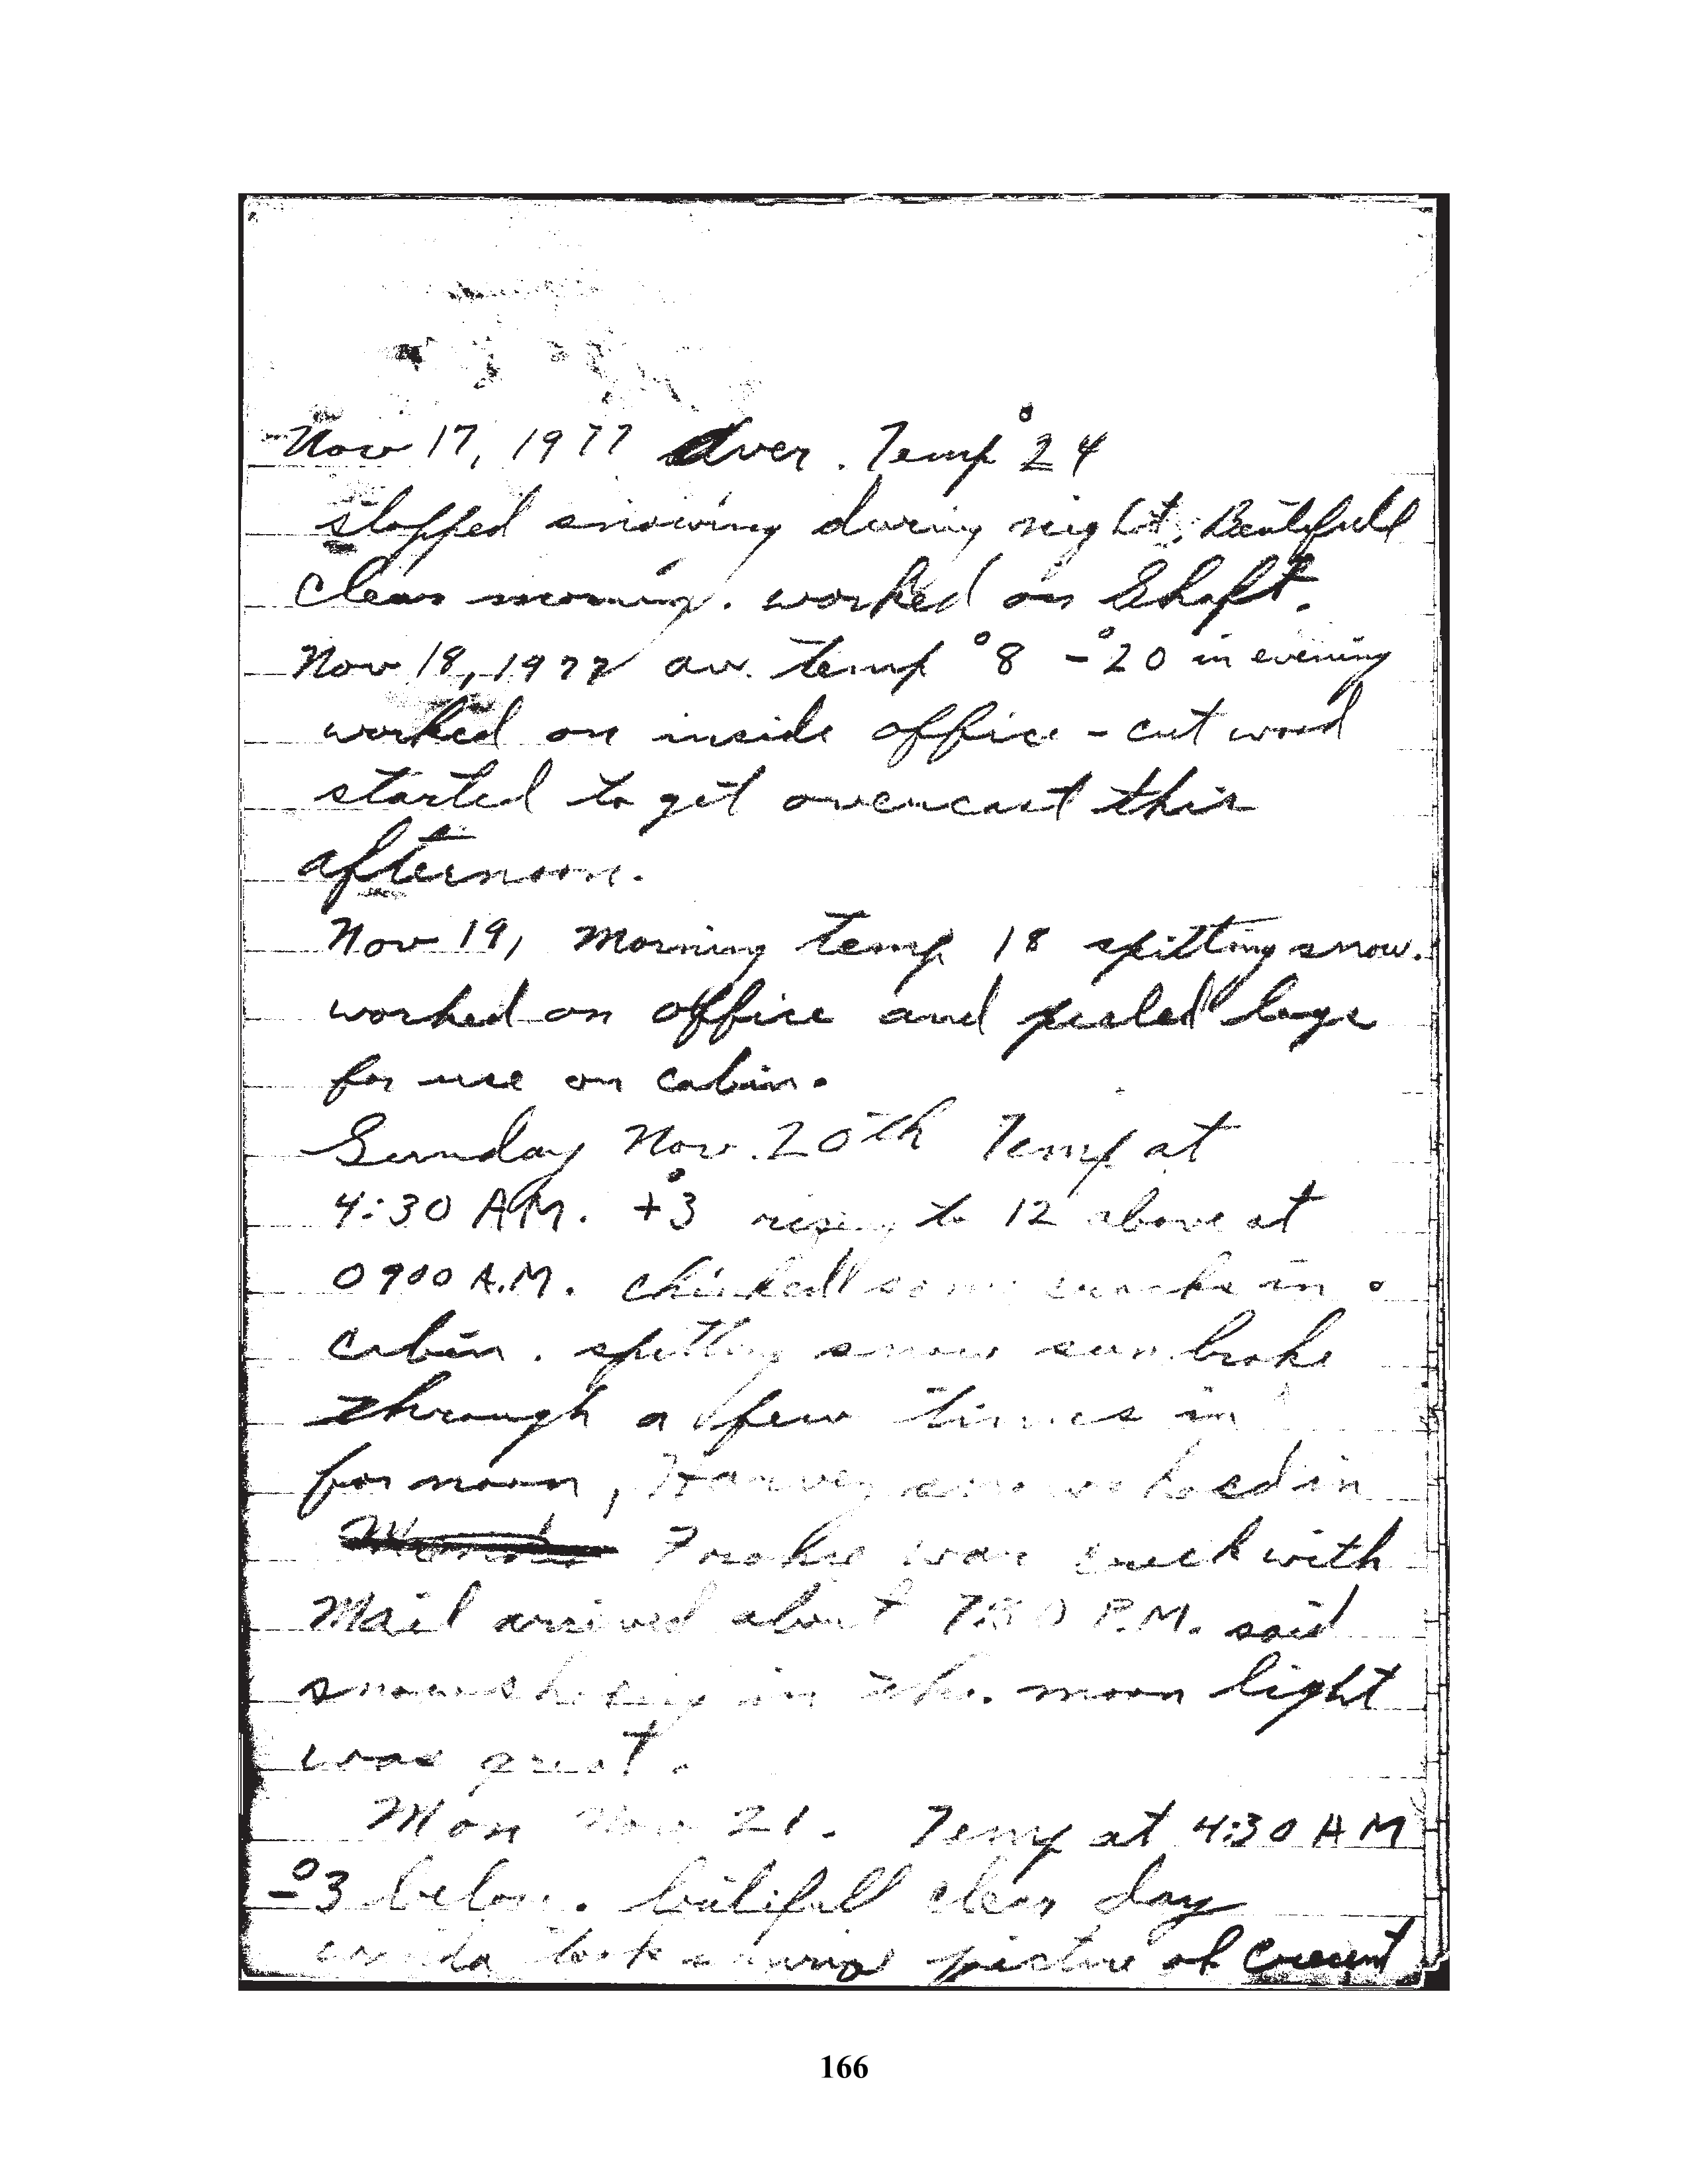 Nov 17, 1977 Aver. Temp °24
stopped snowing during night, Beutifull
clear morning. worked on Shaft.
Nov 18, 1977 av. temp °8 -°20 in evening
worked on inside office - cut wood
started to get overcast this
afternoon.
Nov 19, Morning temp 18 spitting snow.
worked on office and pealed logs
for use on cabin.
Sunday Nov. 20th Temp at
4:30 A.M. +°3 rising to 12 above at
0900 A.M. chinked some cracks in
cabin. spitting snow sun broke
through a few times in
for noon, Harvey snowshoed in
was back with
Mail arrived about 7:30 P.M. said
snowshoeing in the moon light
was great.
Mon Nov 21. Temp at 4:30 AM
-°3 below. beutifull clear day
took picture of Crecent
166